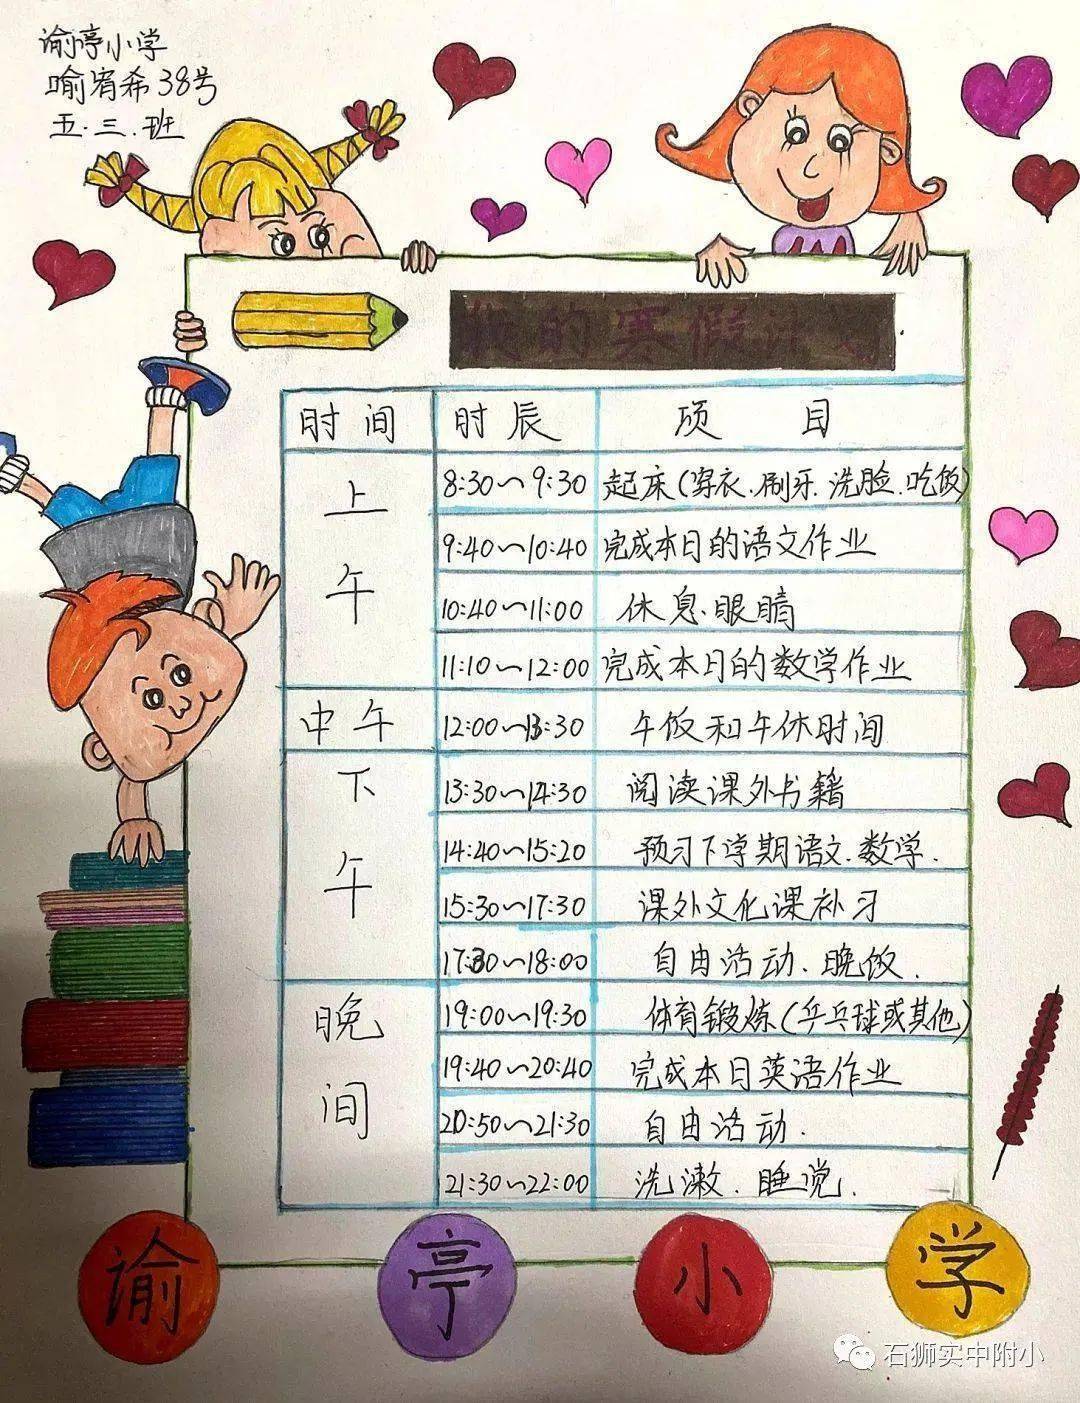 谕亭小学
喻宥希38号
五.三.班
我的寒假计划
时间 时辰 项目
上午
8:30~9:30 起床(穿衣.刷牙.洗脸.吃饭)
9:40~10:40 完成本日的语文作业
10:40~11:00 休息.眼睛
11:10~12:00 完成本日的数学作业
中午 12:00~13:30 午饭和午休时间
下午
13:30~14:30 阅读课外书籍
14:40~15:20 预习下学期语文.数学.
15:30~17:30 课外文化课补习
17:30~18:00 自由活动.晚饭.
晚间
19:00~19:30 体育锻炼(乒乓球或其他)
19:40~20:40 完成本日英语作业
20:50~21:30 自由活动.
21:30~22:00 洗漱.睡觉.
谕亭小学
石狮实中附小